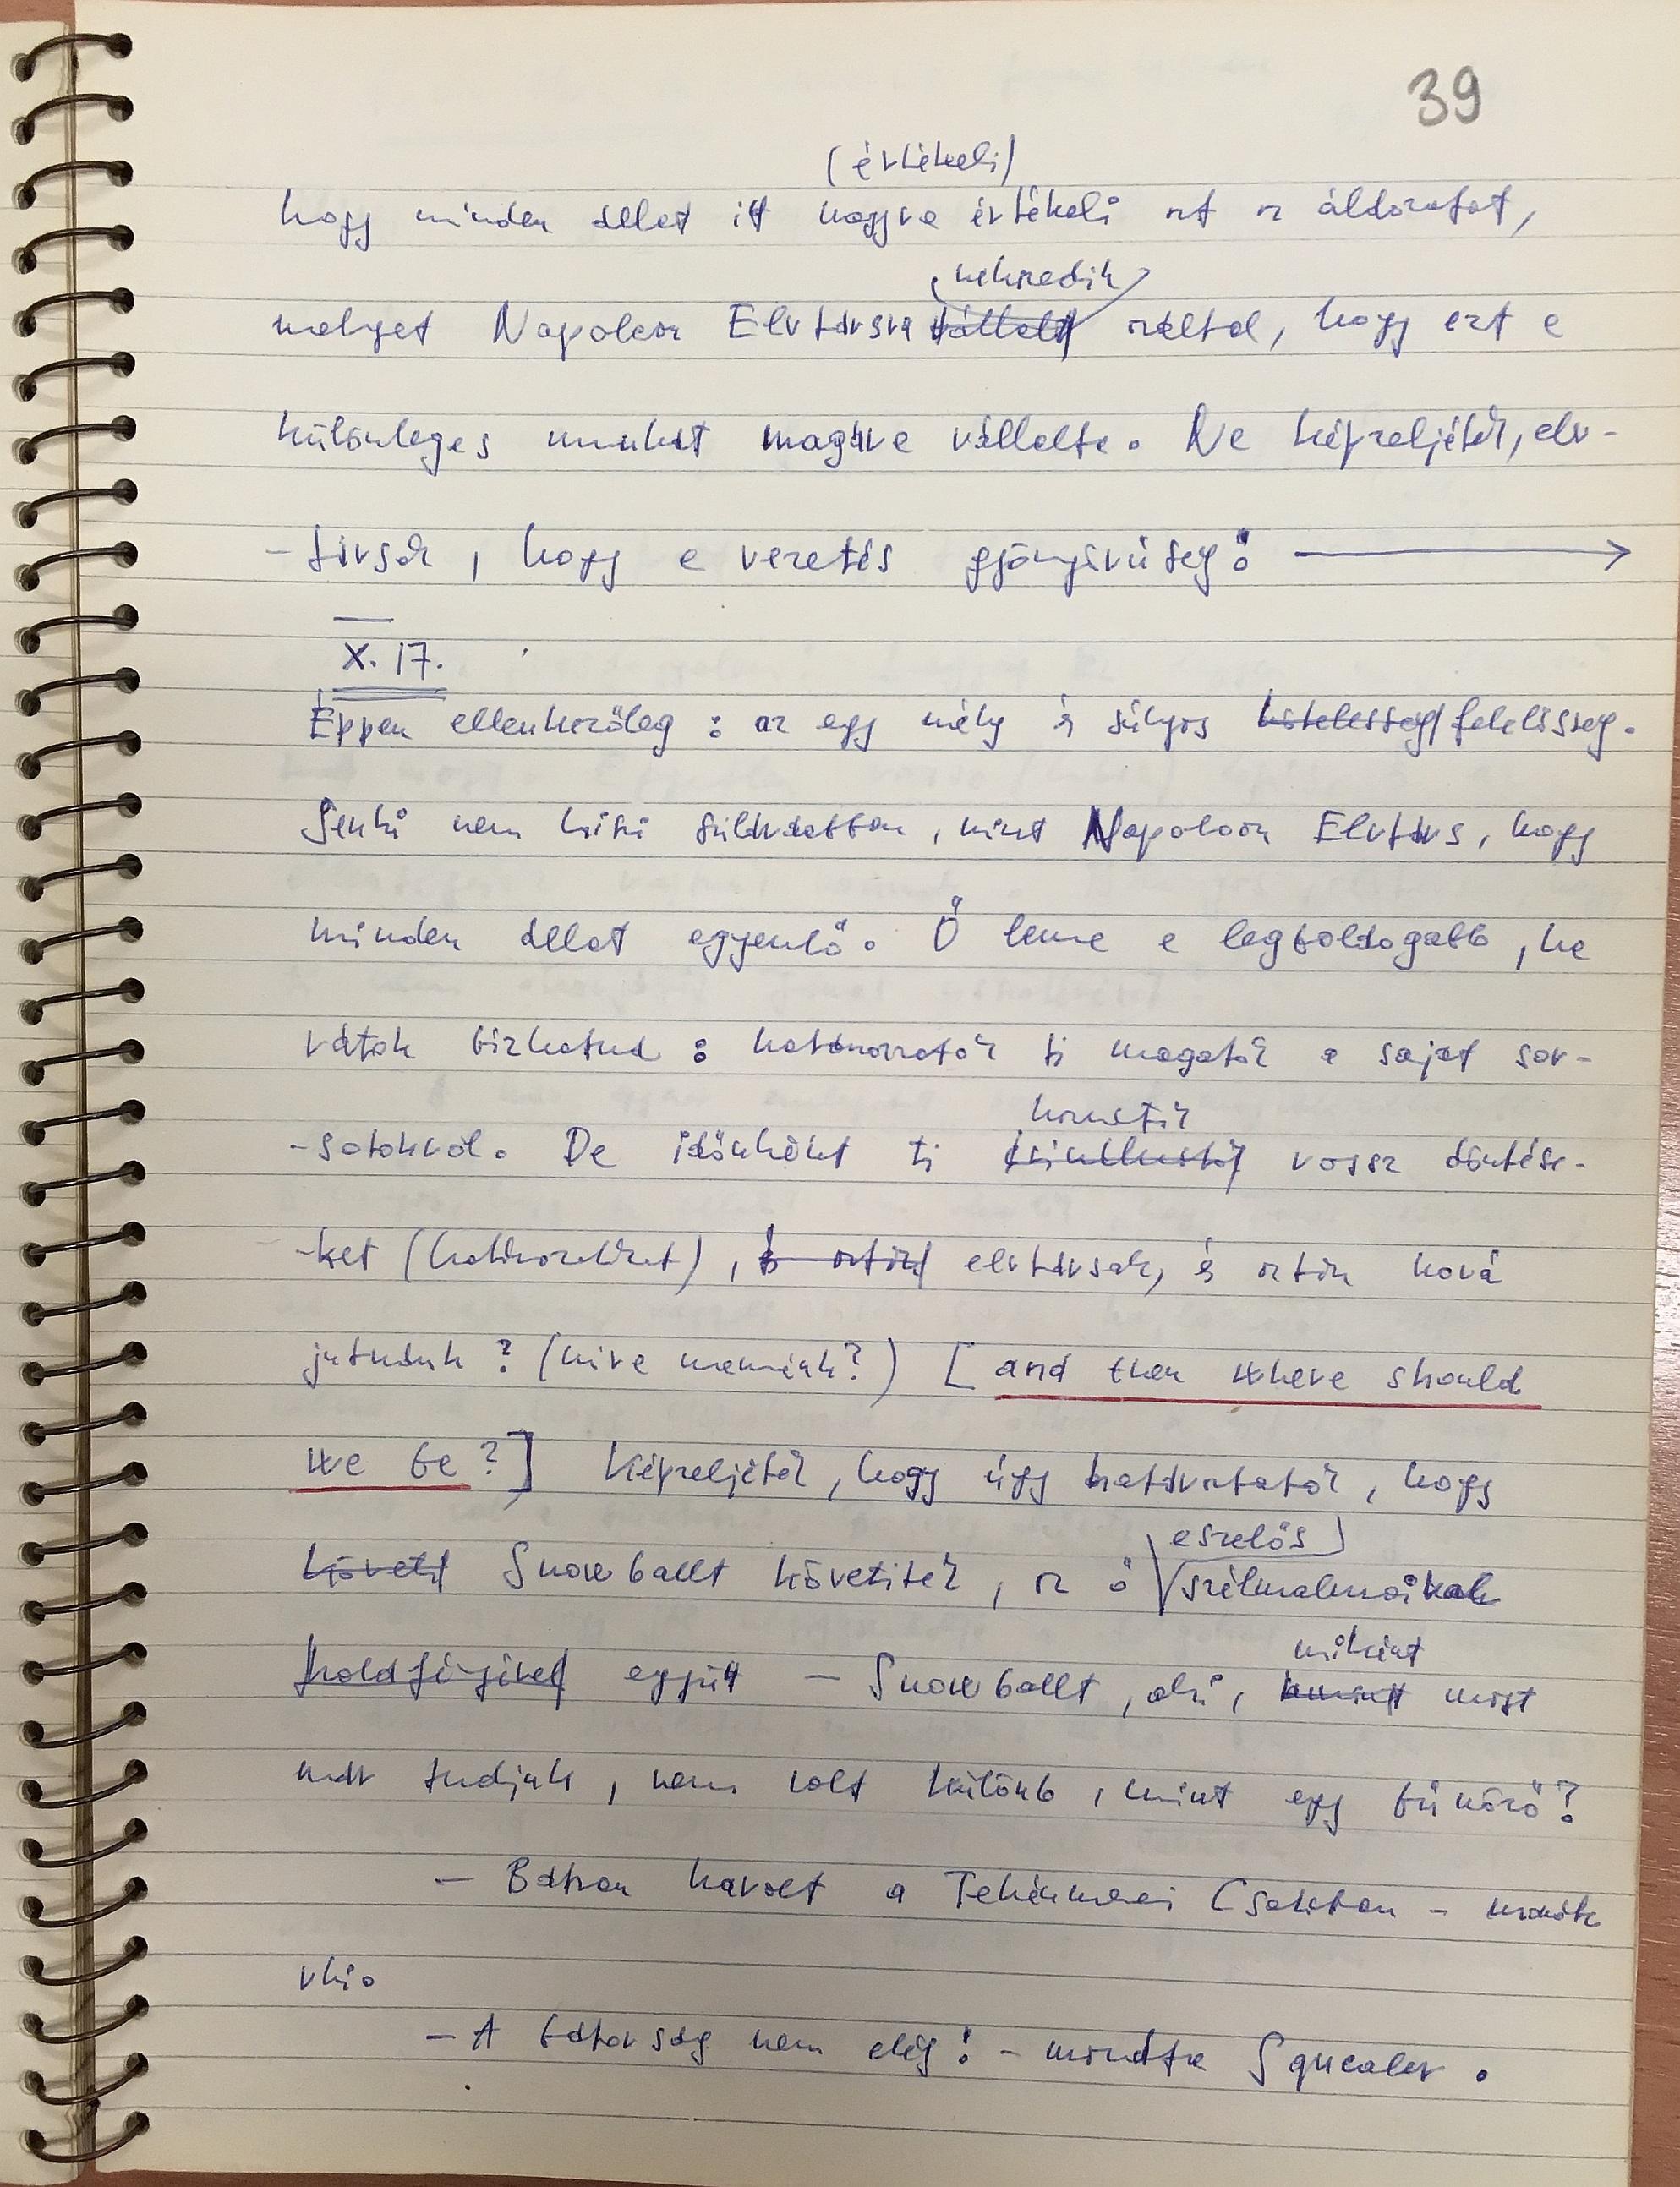 39
(értékeli)
hogy minden állat itt nagyra értékeli azt az áldozatot,
nehezedik
melyet Napoleon Elvtársra vállalt azáltal, hogy ezt a
különleges munkát magára vállalta. Ne képzeljétek, elv-
-társak, hogy a vezetés gyönyörűség!
X. 17.
Éppen ellenkezőleg: az egy mély és súlyos kötelesség felelősség.
Senki nem hiszi szilárdabban, mint Napoleon Elvtárs, hogy
minden állat egyenlő. Ő lenne a legboldogabb, ha
rátok bízhatná: határozzatok ti magatok a saját sor-
-sotokról. De időnként ti
hoznátok
csinálnátok rossz döntése-
-ket (határozatokat), és aztán elvtársak, és aztán hová
jutnánk? (hova mennénk?) [and then where should
we be?] Képzeljétek, hogy úgy határoztatok, hogy
eszelős
követi Snowballt követitek, az ő szélmalmaival
miként
holdfényével együtt – Snowballt, aki, amint most
már tudjuk, nem volt különb, mint egy bűnöző?
– Bátran harcolt a Tehénmezei Csatában – mondta
vki.
– A bátorság nem elég! – mondta Squealer.